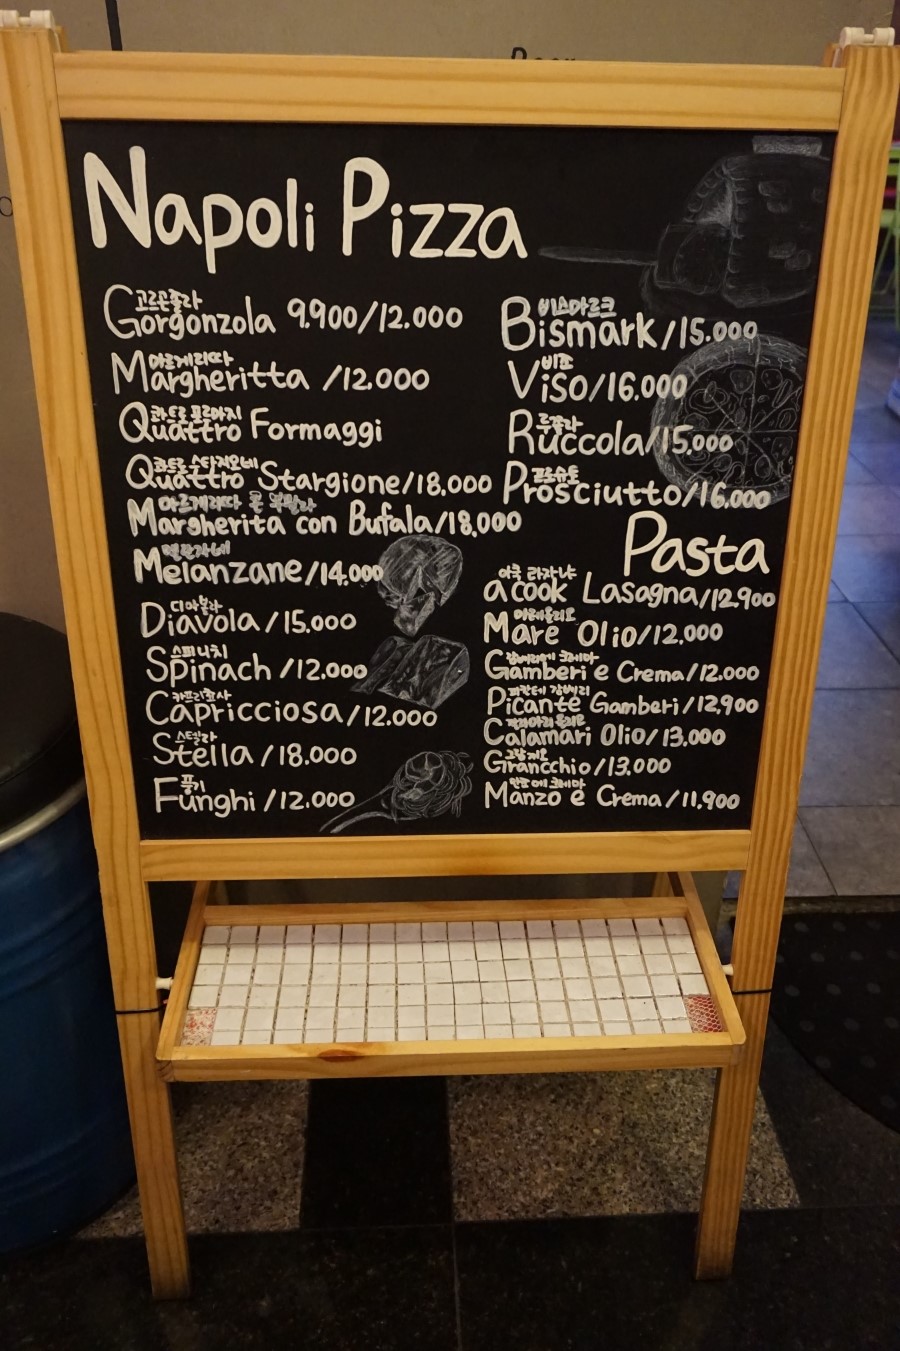 Napoli Pizza
고르곤졸라
Gorgonzola 9.900/12.000
마르게리따
Margheritta /12.000
콰트로 포르마지
Quattro Formaggi
콰트로 스타지오네
Quattro Stargione/18.000
마르게리따 콘 부팔라
Margherita con Bufala/18,000
멜란자네
Melanzane/14.000
디아볼라
Diavola/15.000
스피니치
Spinach/12.000
카프리쵸사
Capricciosa/12.000
스텔라
Stella/18.000
풍기
Funghi/12.000
비스마르크
Bismark/15.000
비죠
Viso/16.000
루꼴라
Ruccola/15.000
프로슈토
Prosciutto/16,000
Pasta
아쿡 라자냐
acook Lasagna/12,900
마레올리오
Mare Olio/12.000
감베리에 크레마
Gamberi e Crema/12.000
피칸테 감베리
Picante Gamberi/12,900
깔라마리 올리오
Calamari Olio/13.000
그랑끼오
Grancchio/13,000
만조 에 크레마
Manzo e Crema/11,900